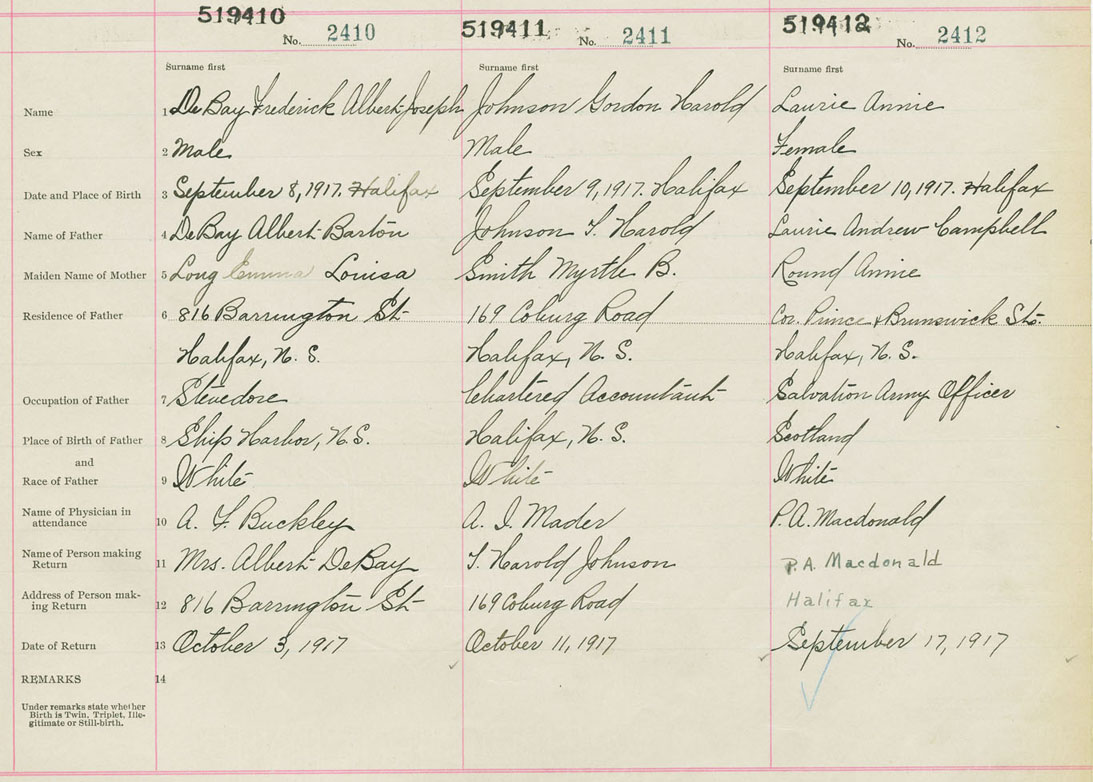 519410 519411 519412
No. 2410 No. 2411 No. 2412
Surname first Surname first Surname first
Name 1 DeBay Frederick Albert Joseph Johnson Gordon Harold Laurie Annie
Sex 2 Male Male Female
Date and Place of Birth 3 September 8, 1917. Halifax September 9, 1917. Halifax September 10, 1917. Halifax
Name of Father 4 DeBay Albert Barton Johnson T. Harold Laurie Andrew Campbell
Maiden Name of Mother 5 Long Emma Louisa Smith Myrtle B. Round Annie
Residence of Father 6 816 Barrington St 169 Coburg Road Cor. Prince & Brunswick Sts.
Halifax, N. S. Halifax, N. S. Halifax, N. S.
Occupation of Father 7 Stevedore Chartered Accountant Salvation Army Officer
Place of Birth of Father 8 Ship Harbor, N.S. Halifax, N. S. Scotland
and
Race of Father 9 White White White
Name of Physician in
attendance 10 A. F. Buckley A. I. Mader P. A. Macdonald
Name of Person making
Return 11 Mrs. Albert DeBay T. Harold Johnson P. A. Macdonald
Address of Person mak-
ing Return 12 816 Barrington St 169 Coburg Road Halifax
Date of Return 13 October 3, 1917 October 11, 1917 September 17, 1917
REMARKS 14
Under remarks state whether
Birth is Twin. Triplet, Ille-
gitimate or Still-birth.